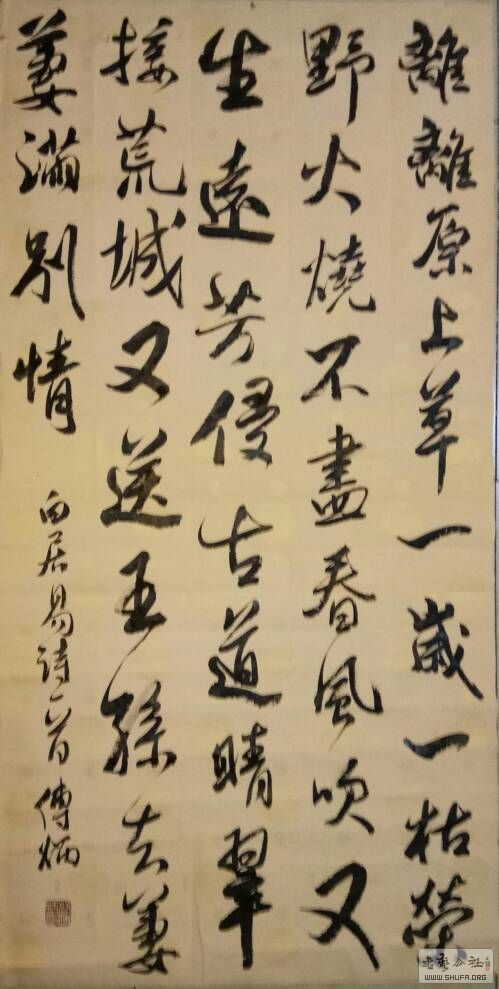 離離原上草一歲一枯榮
野火燒不盡春風吹又
生遠芳侵古道晴翠
接荒城又送王孫去萋
萋滿別情
白居易詩一首 傅炳
書藝公社
WWW.SHUFA.ORG